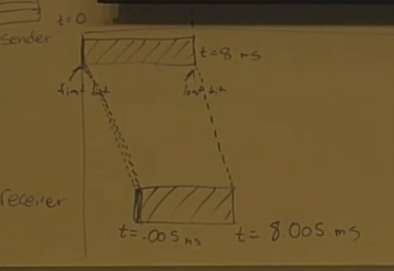 t=0
sender
t=8 ms
first bit
last bit
receiver
t=.005 ms
t= 8.005 ms